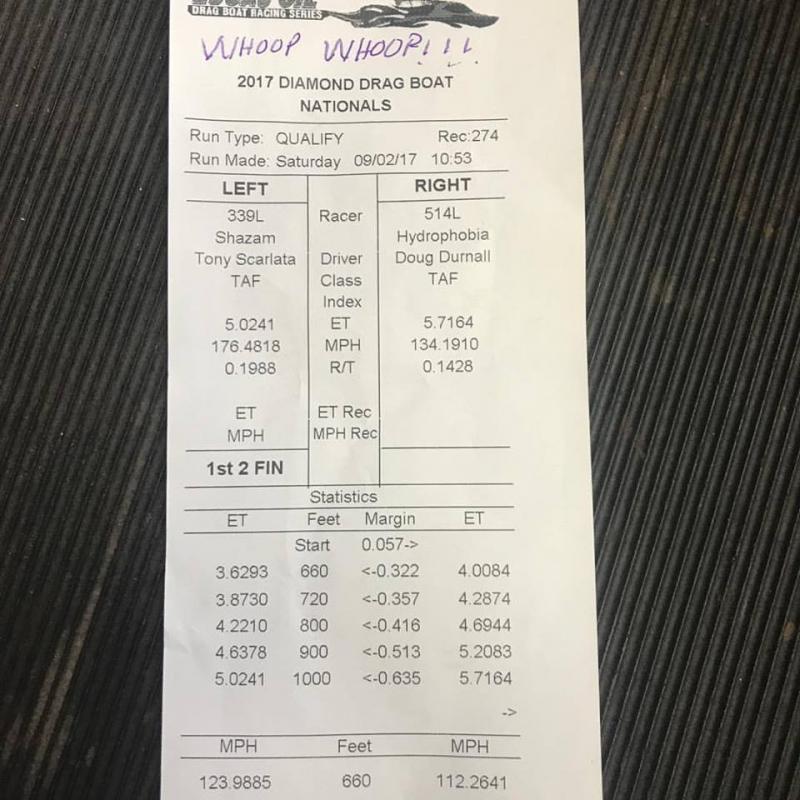 DRAG BOAT RACING SERIES
WHOOP WHOOP!!!
2017 DIAMOND DRAG BOAT
NATIONALS
Run Type: QUALIFY Rec:274
Run Made: Saturday 09/02/17 10:53
LEFT RIGHT
339L Racer 514L
Shazam Hydrophobia
Tony Scarlata Driver Doug Durnall
TAF Class TAF
Index
5.0241 ET 5.7164
176.4818 MPH 134.1910
0.1988 R/T 0.1428
ET ET Rec
MPH MPH Rec
1st 2 FIN
Statistics
ET Feet Margin ET
Start 0.057->
3.6293 660 <-0.322 4.0084
3.8730 720 <-0.357 4.2874
4.2210 800 <-0.416 4.6944
4.6378 900 <-0.513 5.2083
5.0241 1000 <-0.635 5.7164
->
MPH Feet MPH
123.9885 660 112.2641